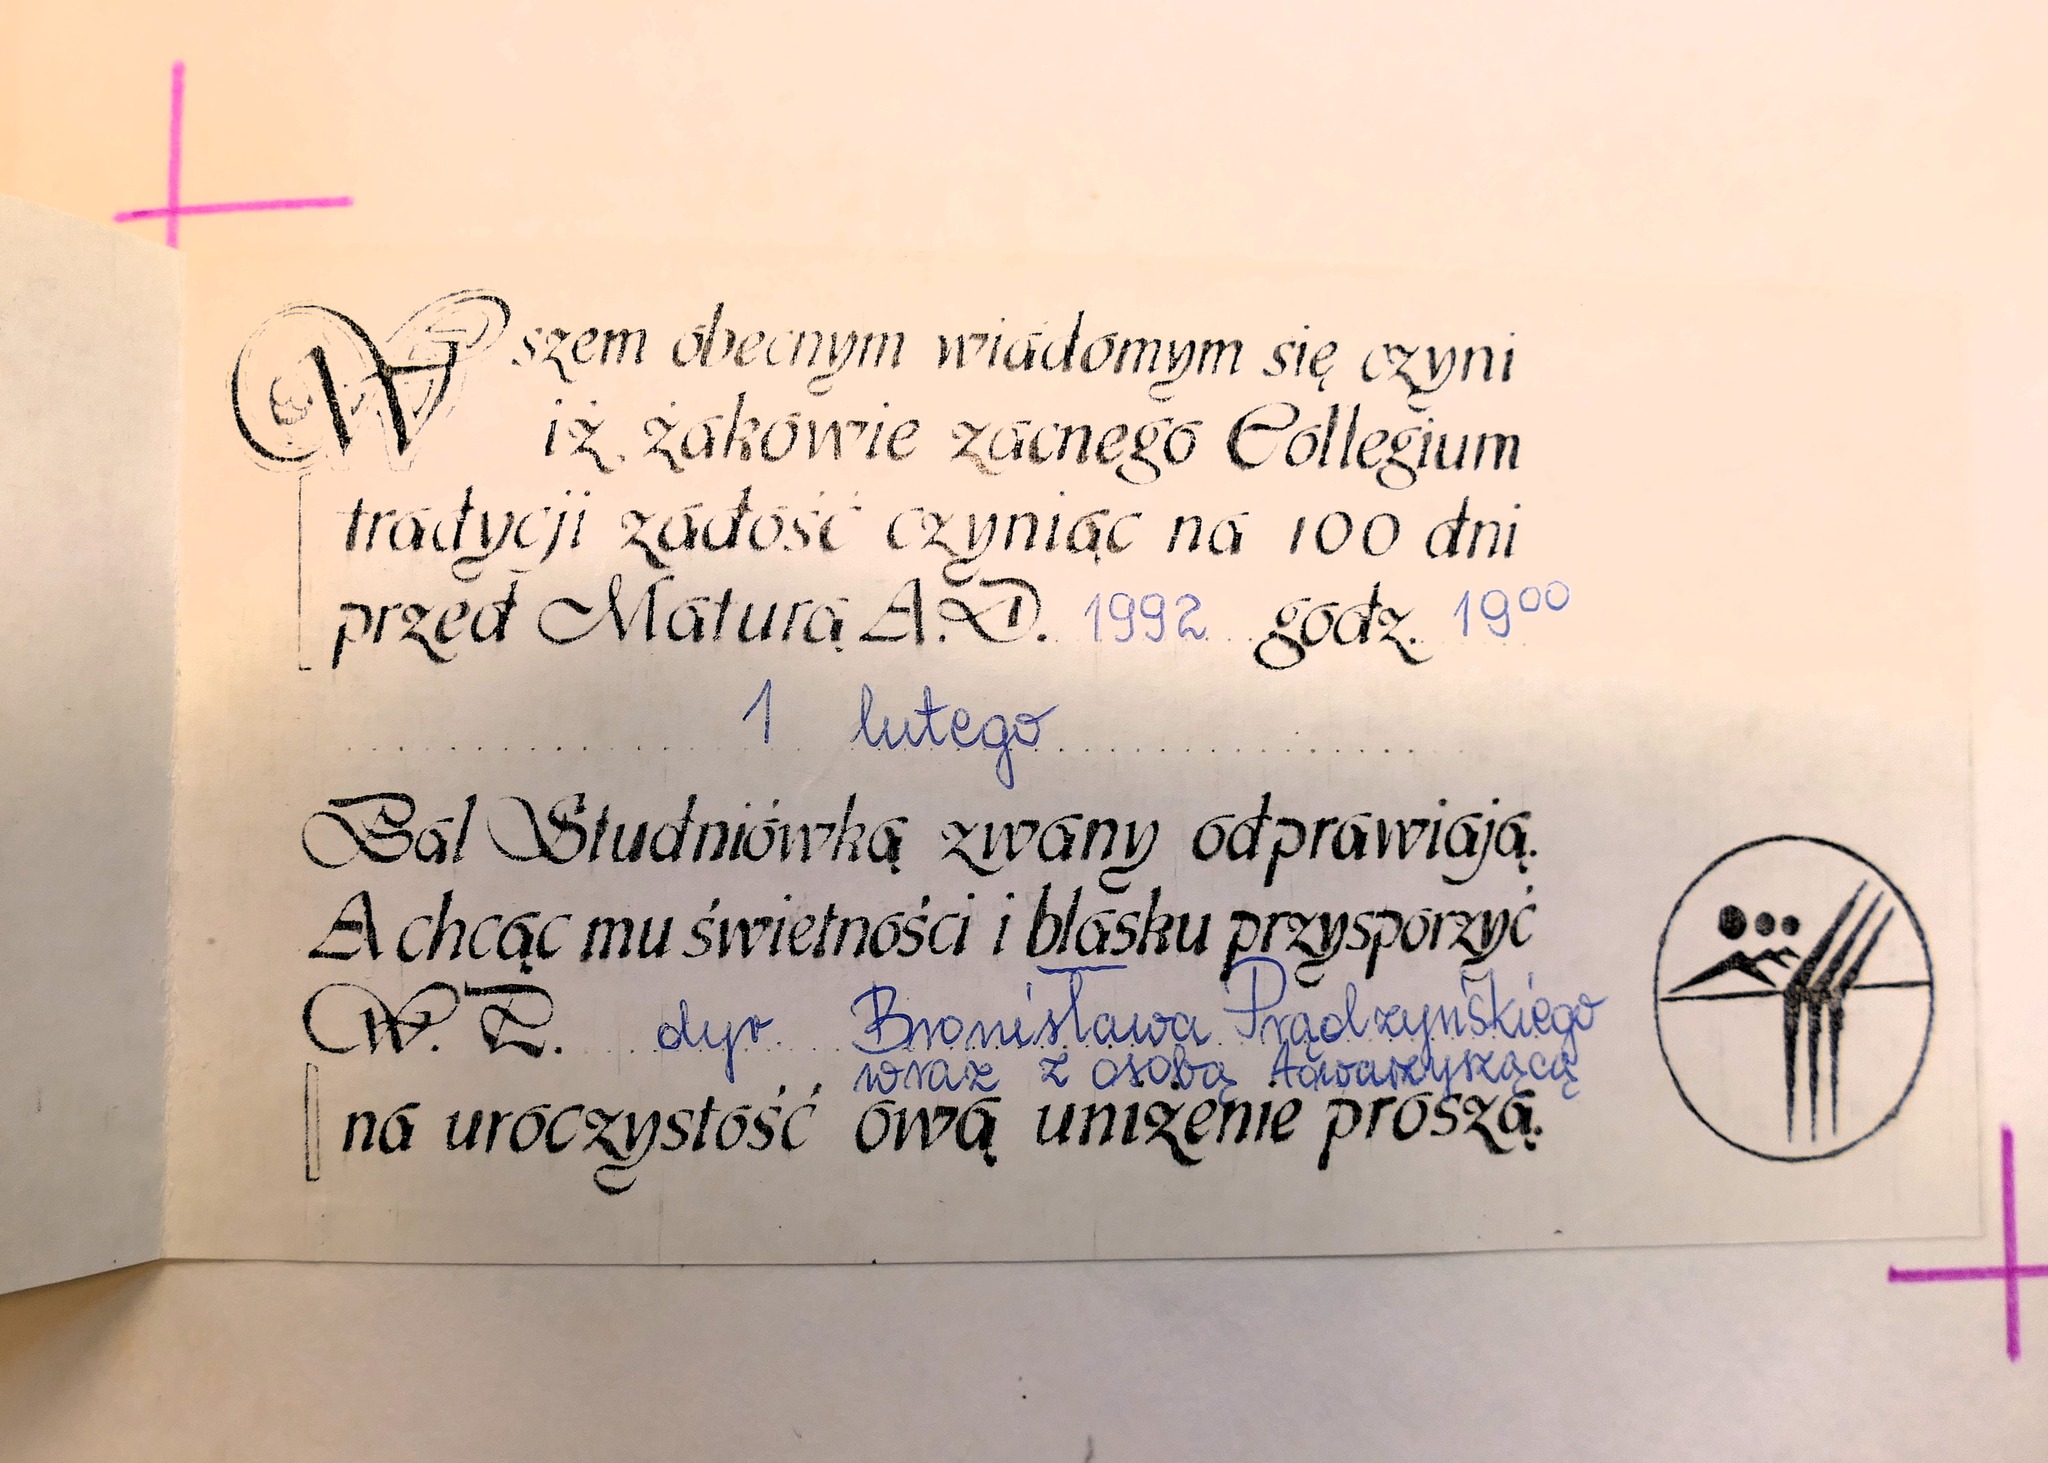 Wszem obecnym wiadomym się czyni
iż żakowie zacnego Collegium
tradycji zadość czyniąc na 100 dni
przed Maturą A.D. 1992 godz. 19⁰⁰
1 lutego
Bal Studniówką zwany odprawiają.
A chcąc mu świetności i blasku przysporzyć
W.P. dyr. Bronisława Prądzyńskiego
wraz z osobą towarzyszącą
na uroczystość ową uniżenie proszą.